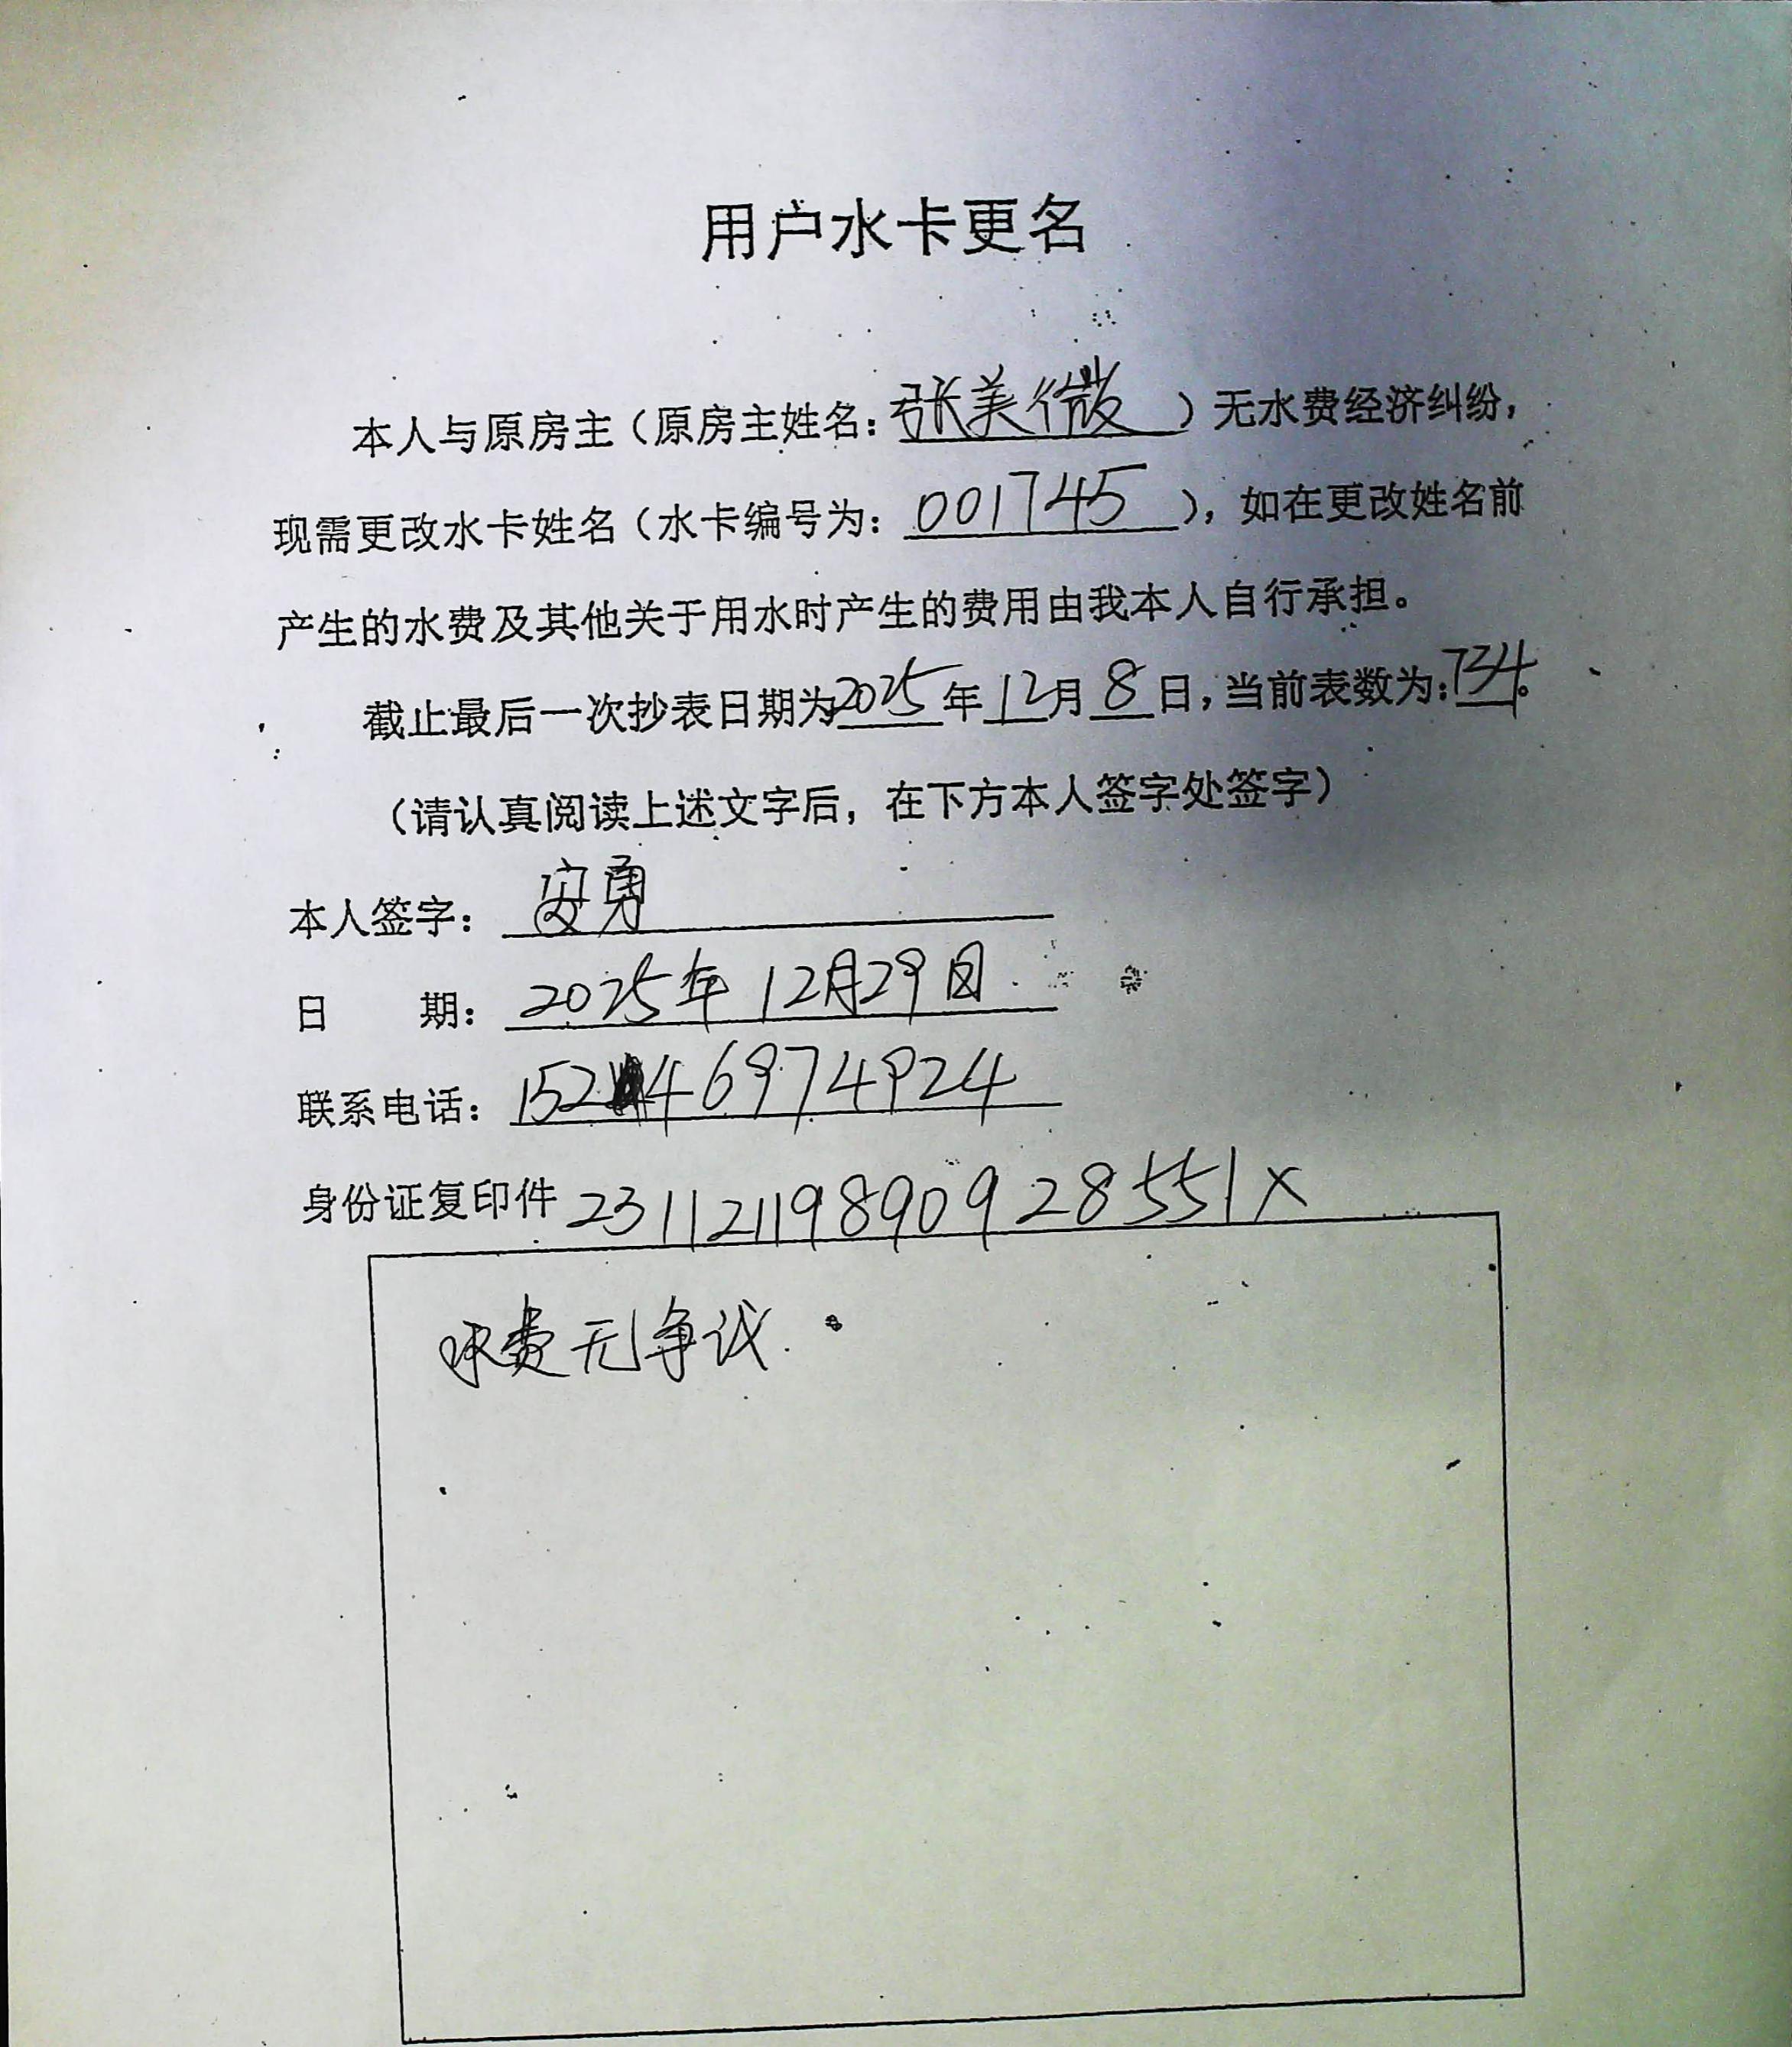 用户水卡更名
本人与原房主（原房主姓名：张美微）无水费经济纠纷，
现需更改水卡姓名（水卡编号为：001745），如在更改姓名前
产生的水费及其他关于用水时产生的费用由我本人自行承担。
截止最后一次抄表日期为2025年12月8日，当前表数为：734。
（请认真阅读上述文字后，在下方本人签字处签字）
本人签字：安勇
日 期：2025年12月29日
联系电话：15246974924
身份证复印件 23112119890928551X
水费无争议.